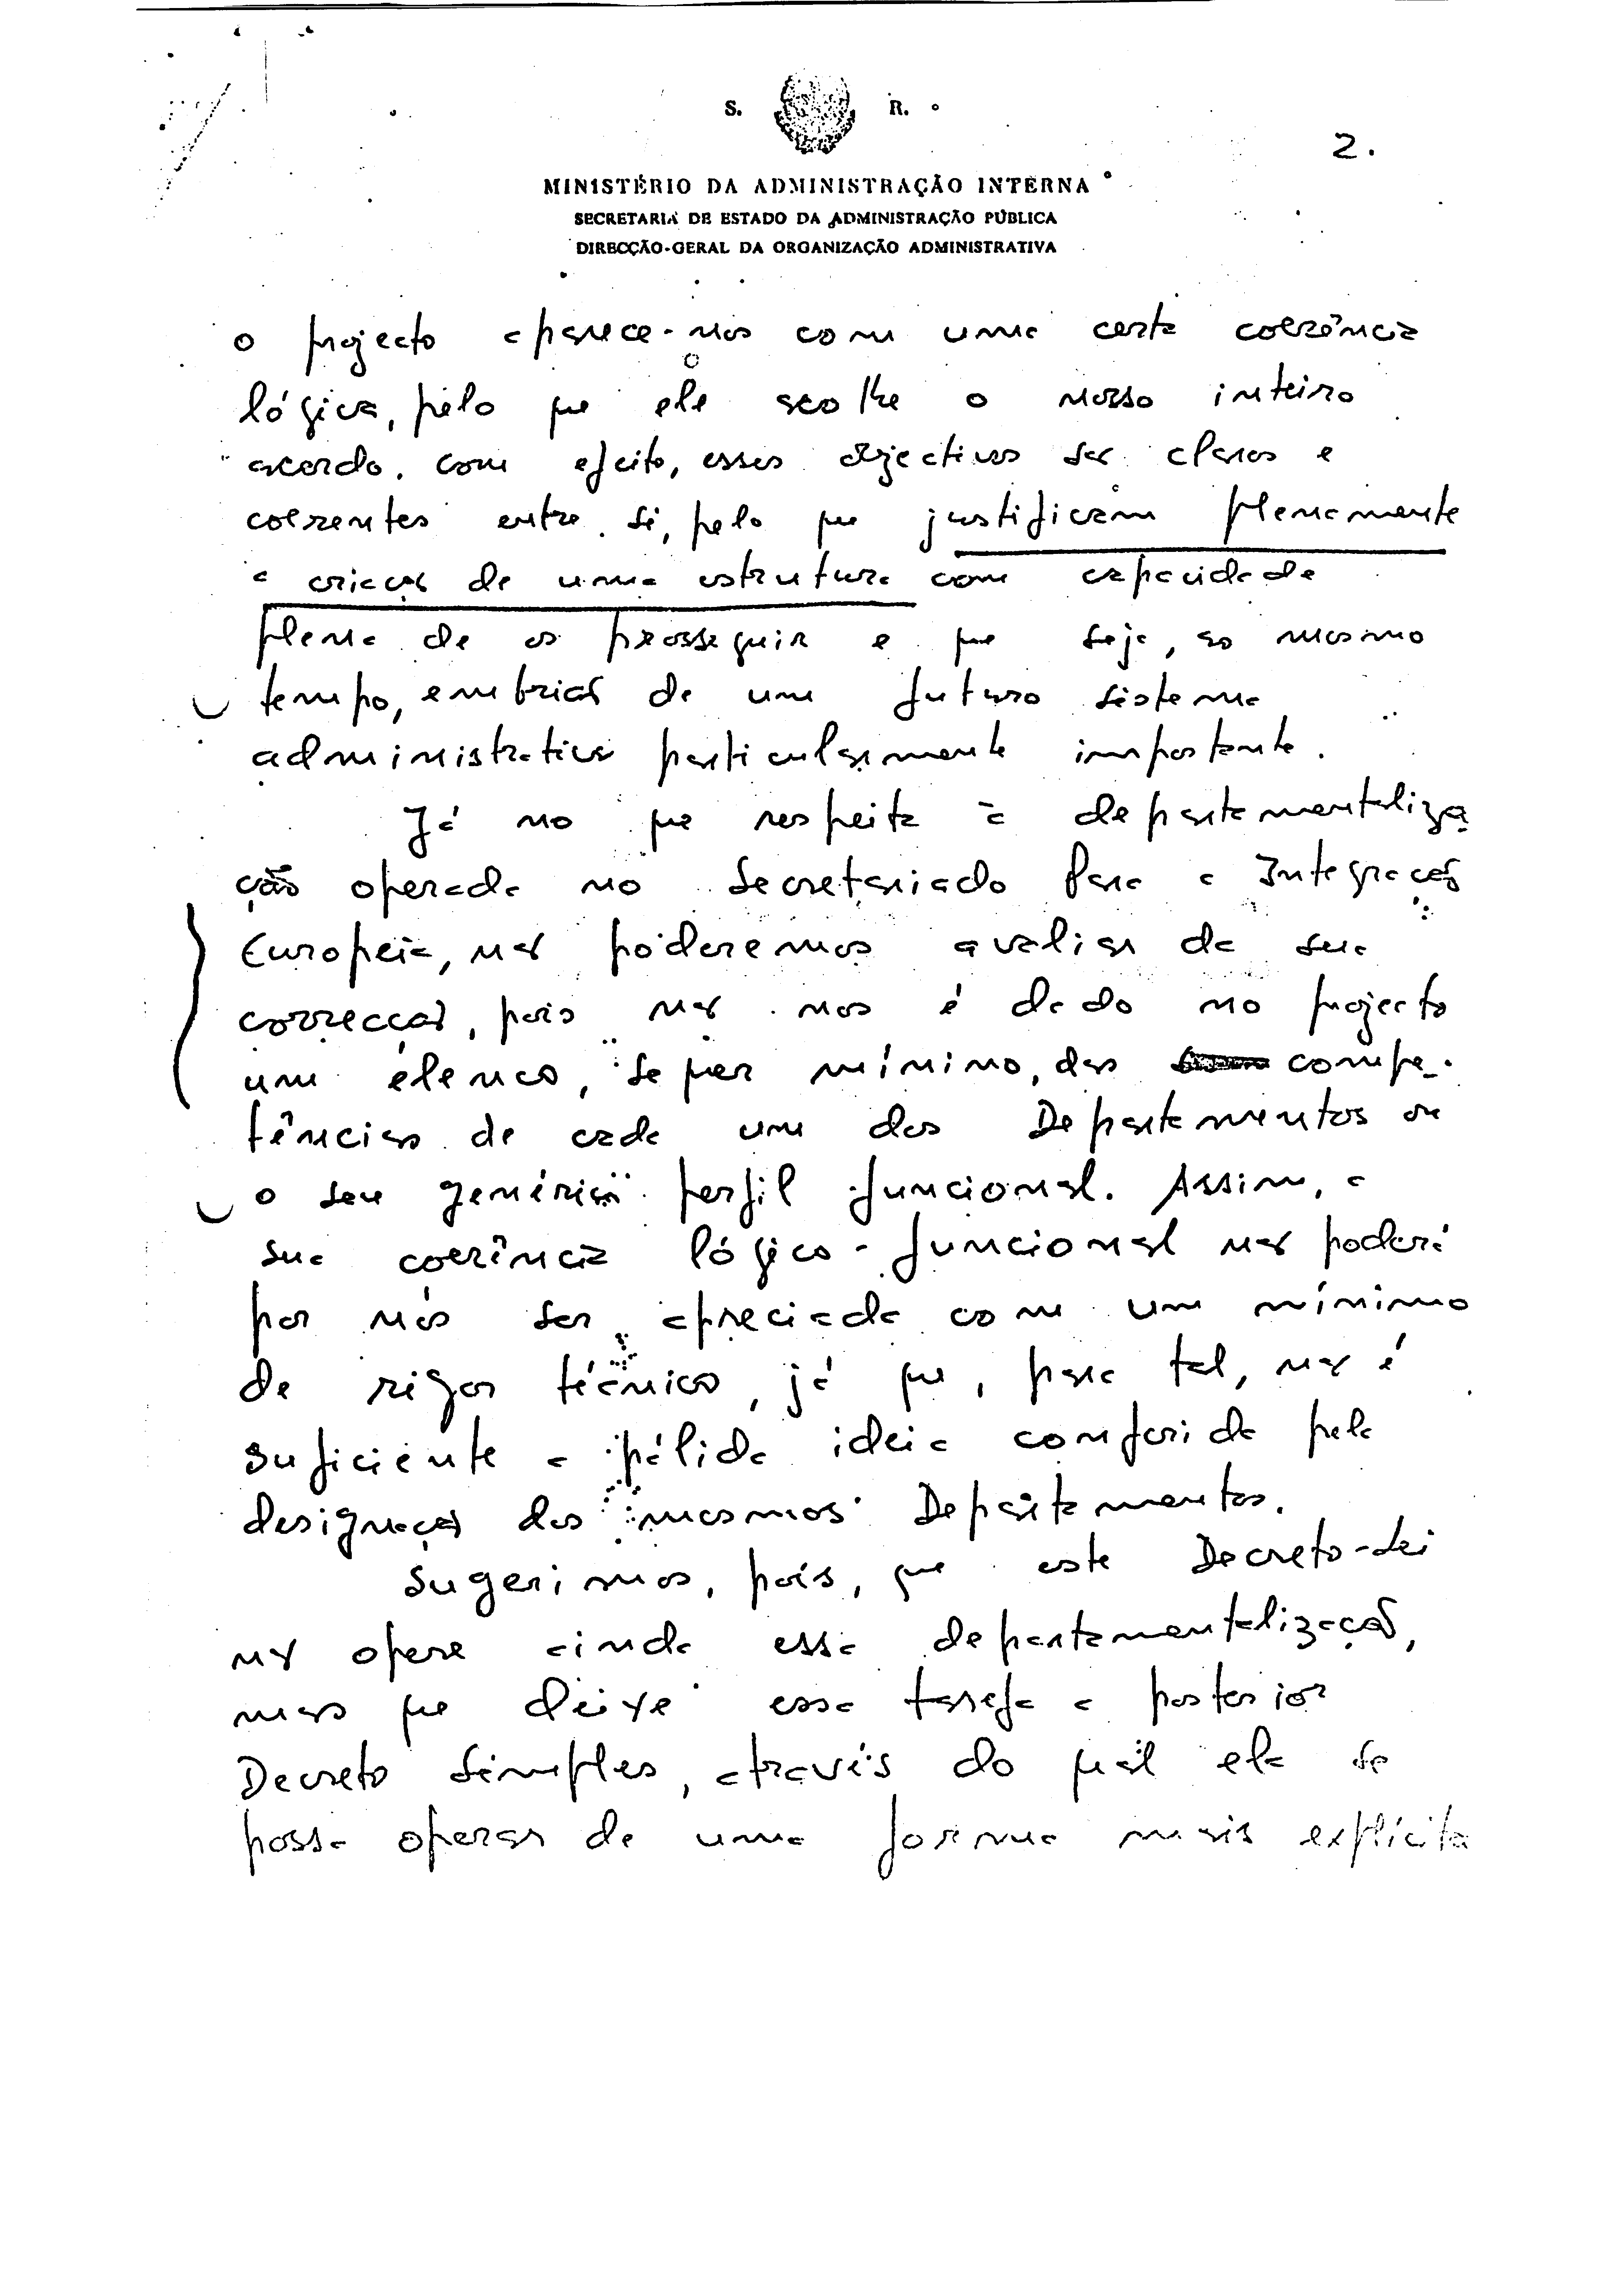 S. R.
2.
MINISTÉRIO DA ADMINISTRAÇÃO INTERNA
SECRETARIA DE ESTADO DA ADMINISTRAÇÃO PÚBLICA
DIRECÇÃO-GERAL DA ORGANIZAÇÃO ADMINISTRATIVA
o projecto aparece-nos com uma certa coerência
lógica, pelo que ele acolhe o nosso inteiro
acordo. Com efeito, esses objectivos são claros e
coerentes entre si, pelo que justificam plenamente
a criação de uma estrutura com capacidade
plena de os prosseguir e que seja, ao mesmo
tempo, embrião de um futuro sistema
administrativo particularmente importante.
Já no que respeita à departamentaliza
ção operada no Secretariado Para a Integração
Europeia, não poderemos avaliar da sua
correcção, pois não nos é dado no projecto
um elenco, sequer mínimo, das compe-
tências de cada um dos Departamentos ou
o seu genérico perfil funcional. Assim, a
sua coerência lógico-funcional não poderá
por nós ser apreciada com um mínimo
de rigor técnico, já que, para tal, não é
suficiente a pálida ideia conferida pela
designação dos mesmos Departamentos.
Sugerimos, pois, que este Decreto-Lei
não opere ainda essa departamentalização,
mas que deixe essa tarefa a posterior
Decreto Simples, através do qual ela se
possa operar de uma forma mais explícita